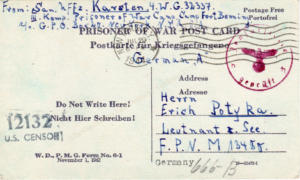 From: San. Uffz. Karsten 4.W.G.32337
Postage Free
Portofrei
III. Komp. Prisoner of War Camp Camp Fort Deming
c/o G.P.O.
PRISONER OF WAR POST CARD
Postkarte für Kriegsgefangene
German.A
Address
Adresse
Do Not Write Here!
Nicht Hier Schreiben!
12132
U.S. CENSOR
Herrn
Erich Potyka.
Leutnant z. See.
F.P.V M 13485.
W. D., P. M. G. Form No. 6-1
November 1, 1942
Germany
666-13
Geprüft